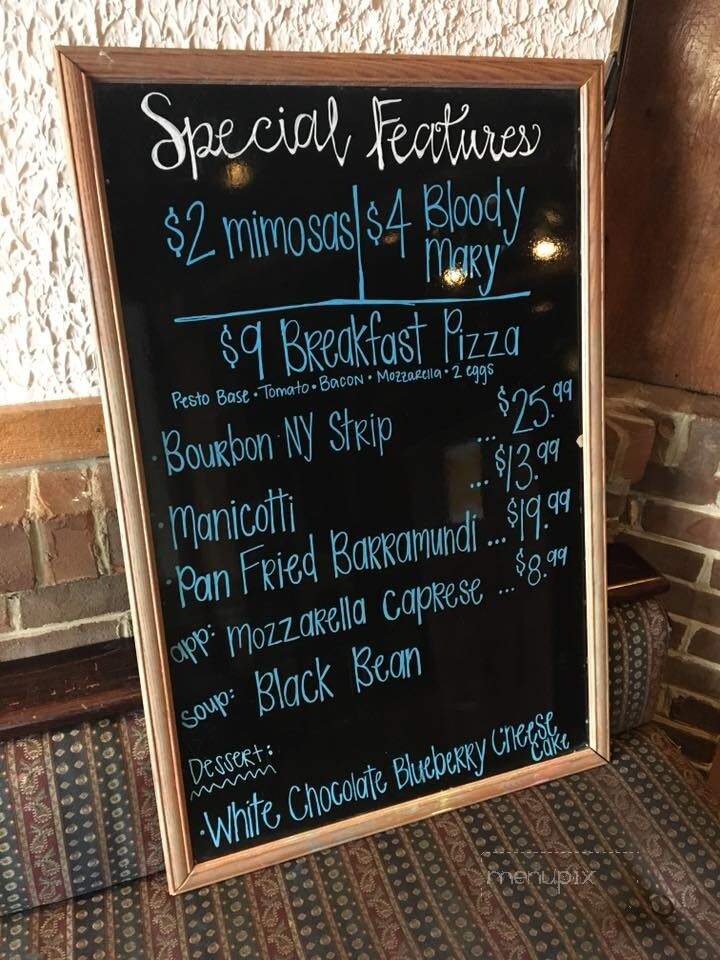 Special Features
$2 mimosas | $4 Bloody Mary
$9 Breakfast Pizza
Pesto Base • Tomato • Bacon • Mozzarella • 2 eggs
• Bourbon NY Strip ... $25.99
• Manicotti ... $13.99
• Pan Fried Barramundi ... $19.99
app: Mozzarella Caprese ... $8.99
soup: Black Bean
Dessert:
• White Chocolate Blueberry Cheese Cake
menupix